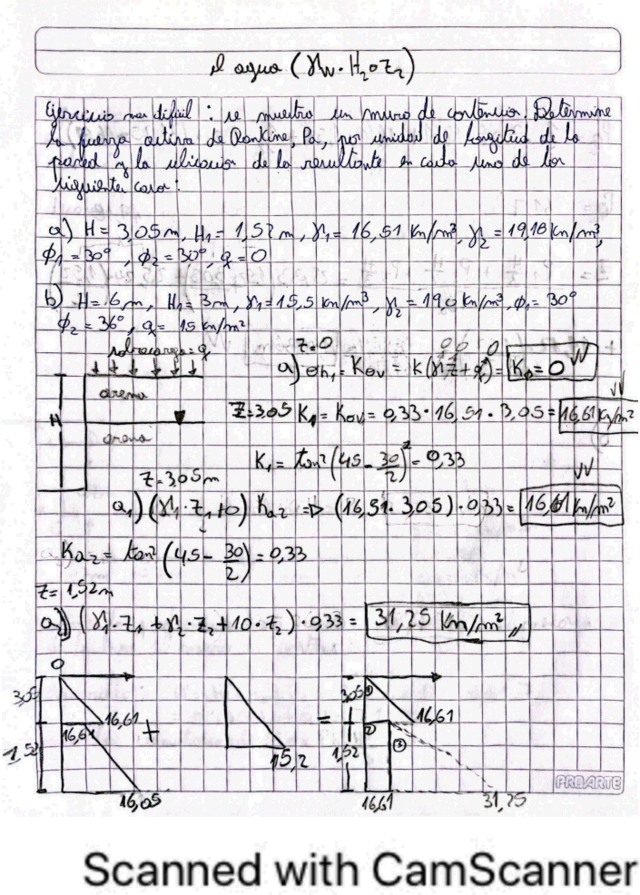 el agua (γw · H2O Z2)
Ejercicio mas dificil : se muestra un muro de contención. Determine
la fuerza activa de Rankine, Pa, por unidad de longitud de la
pared y la ubicacion de la resultante en cada uno de los
siguientes casos:
a) H = 3,05 m, H1 = 1,52 m, γ1 = 16,51 Kn/m³, γ2 = 19,18 Kn/m³,
ϕ1 = 30°, ϕ2 = 30°, q = 0
b) H = 6 m, H1 = 3 m, γ1 = 15,5 Kn/m³, γ2 = 19,0 Kn/m³, ϕ1 = 30°
ϕ2 = 36°, q = 15 Kn/m²
sobrecarga = q
Z = 0
0 0 0
a) σh1 = Kσv = K(γ·Z + q) = K0 = 0
arena
H
Z = 3,05 K1 = Kσv = 0,33 · 16,51 · 3,05 = 16,61 Kn/m²
arena
K1 = tan² (45 - 30/2)² = 0,33
Z = 3,05 m
a1) (γ1 · Z1 + 0) Ka2 => (16,51 · 3,05) · 0,33 = 16,61 Kn/m²
Ka2 = tan² (45 - 30/2) = 0,33
Z = 1,52 m
a2) (γ1 · Z1 + γ2 · Z2 + 10 · Z2) · 0,33 = 31,25 Kn/m²
0
3,05
16,61
16,61
+
1,52
16,05
15,2
=
3,05
①
16,61
1,52
②
③
16,61
31,25
PROARTE
Scanned with CamScanner